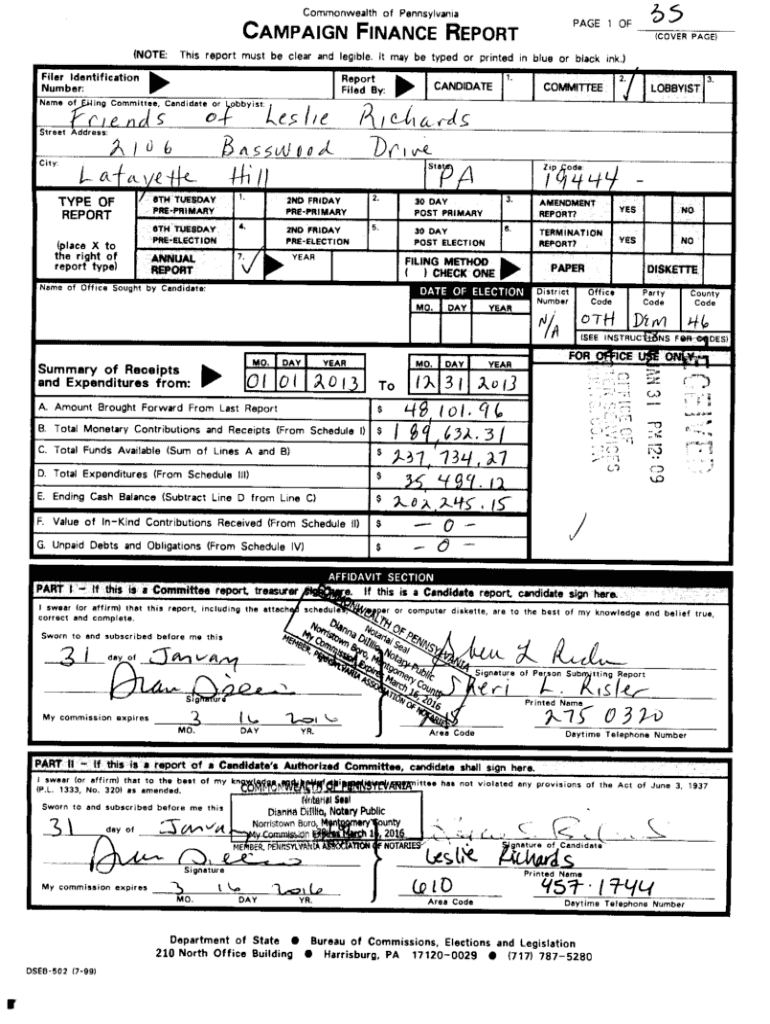 Commonwealth of Pennsylvania
CAMPAIGN FINANCE REPORT
PAGE 1 OF 35
(COVER PAGE)
(NOTE: This report must be clear and legible. It may be typed or printed in blue or black ink.)
Filer Identification Number:
Report Filed By:
CANDIDATE 1.
COMMITTEE 2. ✓
LOBBYIST 3.
Name of Filing Committee, Candidate or Lobbyist:
Friends of Leslie Richards
Street Address:
2106 Basswood Drive
City: Lafayette Hill
State PA
Zip Code 19444 -
TYPE OF REPORT
(place X to the right of report type)
6TH TUESDAY PRE-PRIMARY 1.
2ND FRIDAY PRE-PRIMARY 2.
30 DAY POST PRIMARY 3.
AMENDMENT REPORT? YES NO
6TH TUESDAY PRE-ELECTION 4.
2ND FRIDAY PRE-ELECTION 5.
30 DAY POST ELECTION 6.
TERMINATION REPORT? YES NO
ANNUAL REPORT 7. ✓
YEAR
FILING METHOD ( ) CHECK ONE
PAPER
DISKETTE
Name of Office Sought by Candidate:
DATE OF ELECTION
MO. DAY YEAR
District Number N/A
Office Code OTH
Party Code DEM
County Code 46
(SEE INSTRUCTIONS FOR CODES)
Summary of Receipts and Expenditures from:
MO. DAY YEAR
01 01 2013
To
MO. DAY YEAR
12 31 2013
FOR OFFICE USE ONLY
A. Amount Brought Forward From Last Report $ 48,101.96
B. Total Monetary Contributions and Receipts (From Schedule I) $ 189,632.31
C. Total Funds Available (Sum of Lines A and B) $ 237,734.27
D. Total Expenditures (From Schedule III) $ 35,489.12
E. Ending Cash Balance (Subtract Line D from Line C) $ 202,245.15
F. Value of In-Kind Contributions Received (From Schedule II) $ - 0 -
G. Unpaid Debts and Obligations (From Schedule IV) $ - 0 -
31 PM 12: 09
AFFIDAVIT SECTION
PART I - If this is a Committee report, treasurer sign here. If this is a Candidate report, candidate sign here.
I swear (or affirm) that this report, including the attached schedules, paper or computer diskette, are to the best of my knowledge and belief true, correct and complete.
Sworn to and subscribed before me this
31 day of January
Signature
My commission expires 3 16 2016
MO. DAY YR.
COMMONWEALTH OF PENNSYLVANIA
Notarial Seal
Dianna DiIllio, Notary Public
Norristown Boro, Montgomery County
My Commission Expires March 16, 2016
MEMBER, PENNSYLVANIA ASSOCIATION OF NOTARIES
Signature of Person Submitting Report
Sheri L. Risler
Printed Name
275 0320
Area Code
Daytime Telephone Number
PART II - If this is a report of a Candidate's Authorized Committee, candidate shall sign here.
I swear (or affirm) that to the best of my knowledge and belief this political committee has not violated any provisions of the Act of June 3, 1937 (P.L. 1333, No. 320) as amended.
Sworn to and subscribed before me this
31 day of January
Signature
My commission expires 3 16 2016
MO. DAY YR.
COMMONWEALTH OF PENNSYLVANIA
Notarial Seal
Dianna DiIllio, Notary Public
Norristown Boro, Montgomery County
My Commission Expires March 16, 2016
MEMBER, PENNSYLVANIA ASSOCIATION OF NOTARIES
Signature of Candidate
Leslie Richards
Printed Name
610 457-1744
Area Code
Daytime Telephone Number
Department of State ● Bureau of Commissions, Elections and Legislation
210 North Office Building ● Harrisburg, PA 17120-0029 ● (717) 787-5280
DSEB-502 (7-99)